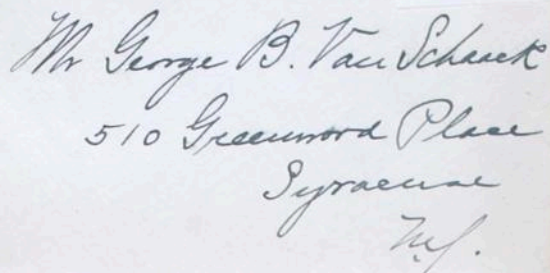 Mr George B. Van Schaack
510 Greenwood Place
Syracuse
N.Y.